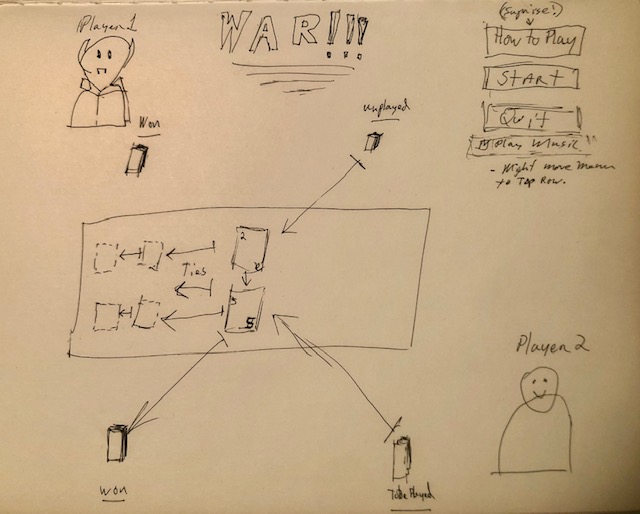 Player 1
WAR!!!
(Surprise!)
How to Play
START
Quit
Play Music
- Might move menu
to Top Row.
Won
unplayed
2
Ties
5
Player 2
won
To Be Played